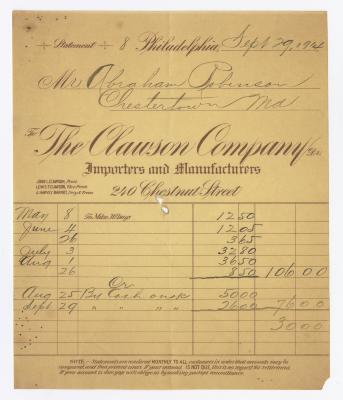 Statement 8 Philadelphia, Sept 29, 1914
Mr Abraham Robinson
Chestertown Md
To The Clawson Company, Dr.
Importers and Manufacturers
JOHN L. CLAWSON, Pres.
LEWIS T. CLAWSON, Vice Pres.
240 Chestnut Street
May 8 To Mdse 12 50
June 4 12 05
26 3 65
July 3 32 80
Aug 1 36 50
26 8 50 106 00
Cr
Aug 25 By Cash on a/c 50 00
Sept 29 " " " " 26 00 76 00
30 00
NOTE:—Statements are rendered MONTHLY TO ALL customers in order that accounts may be
compared and thus prevent errors. If your account IS NOT DUE, this is no request for settlement.
If your account is due you will oblige us by making prompt remittance.